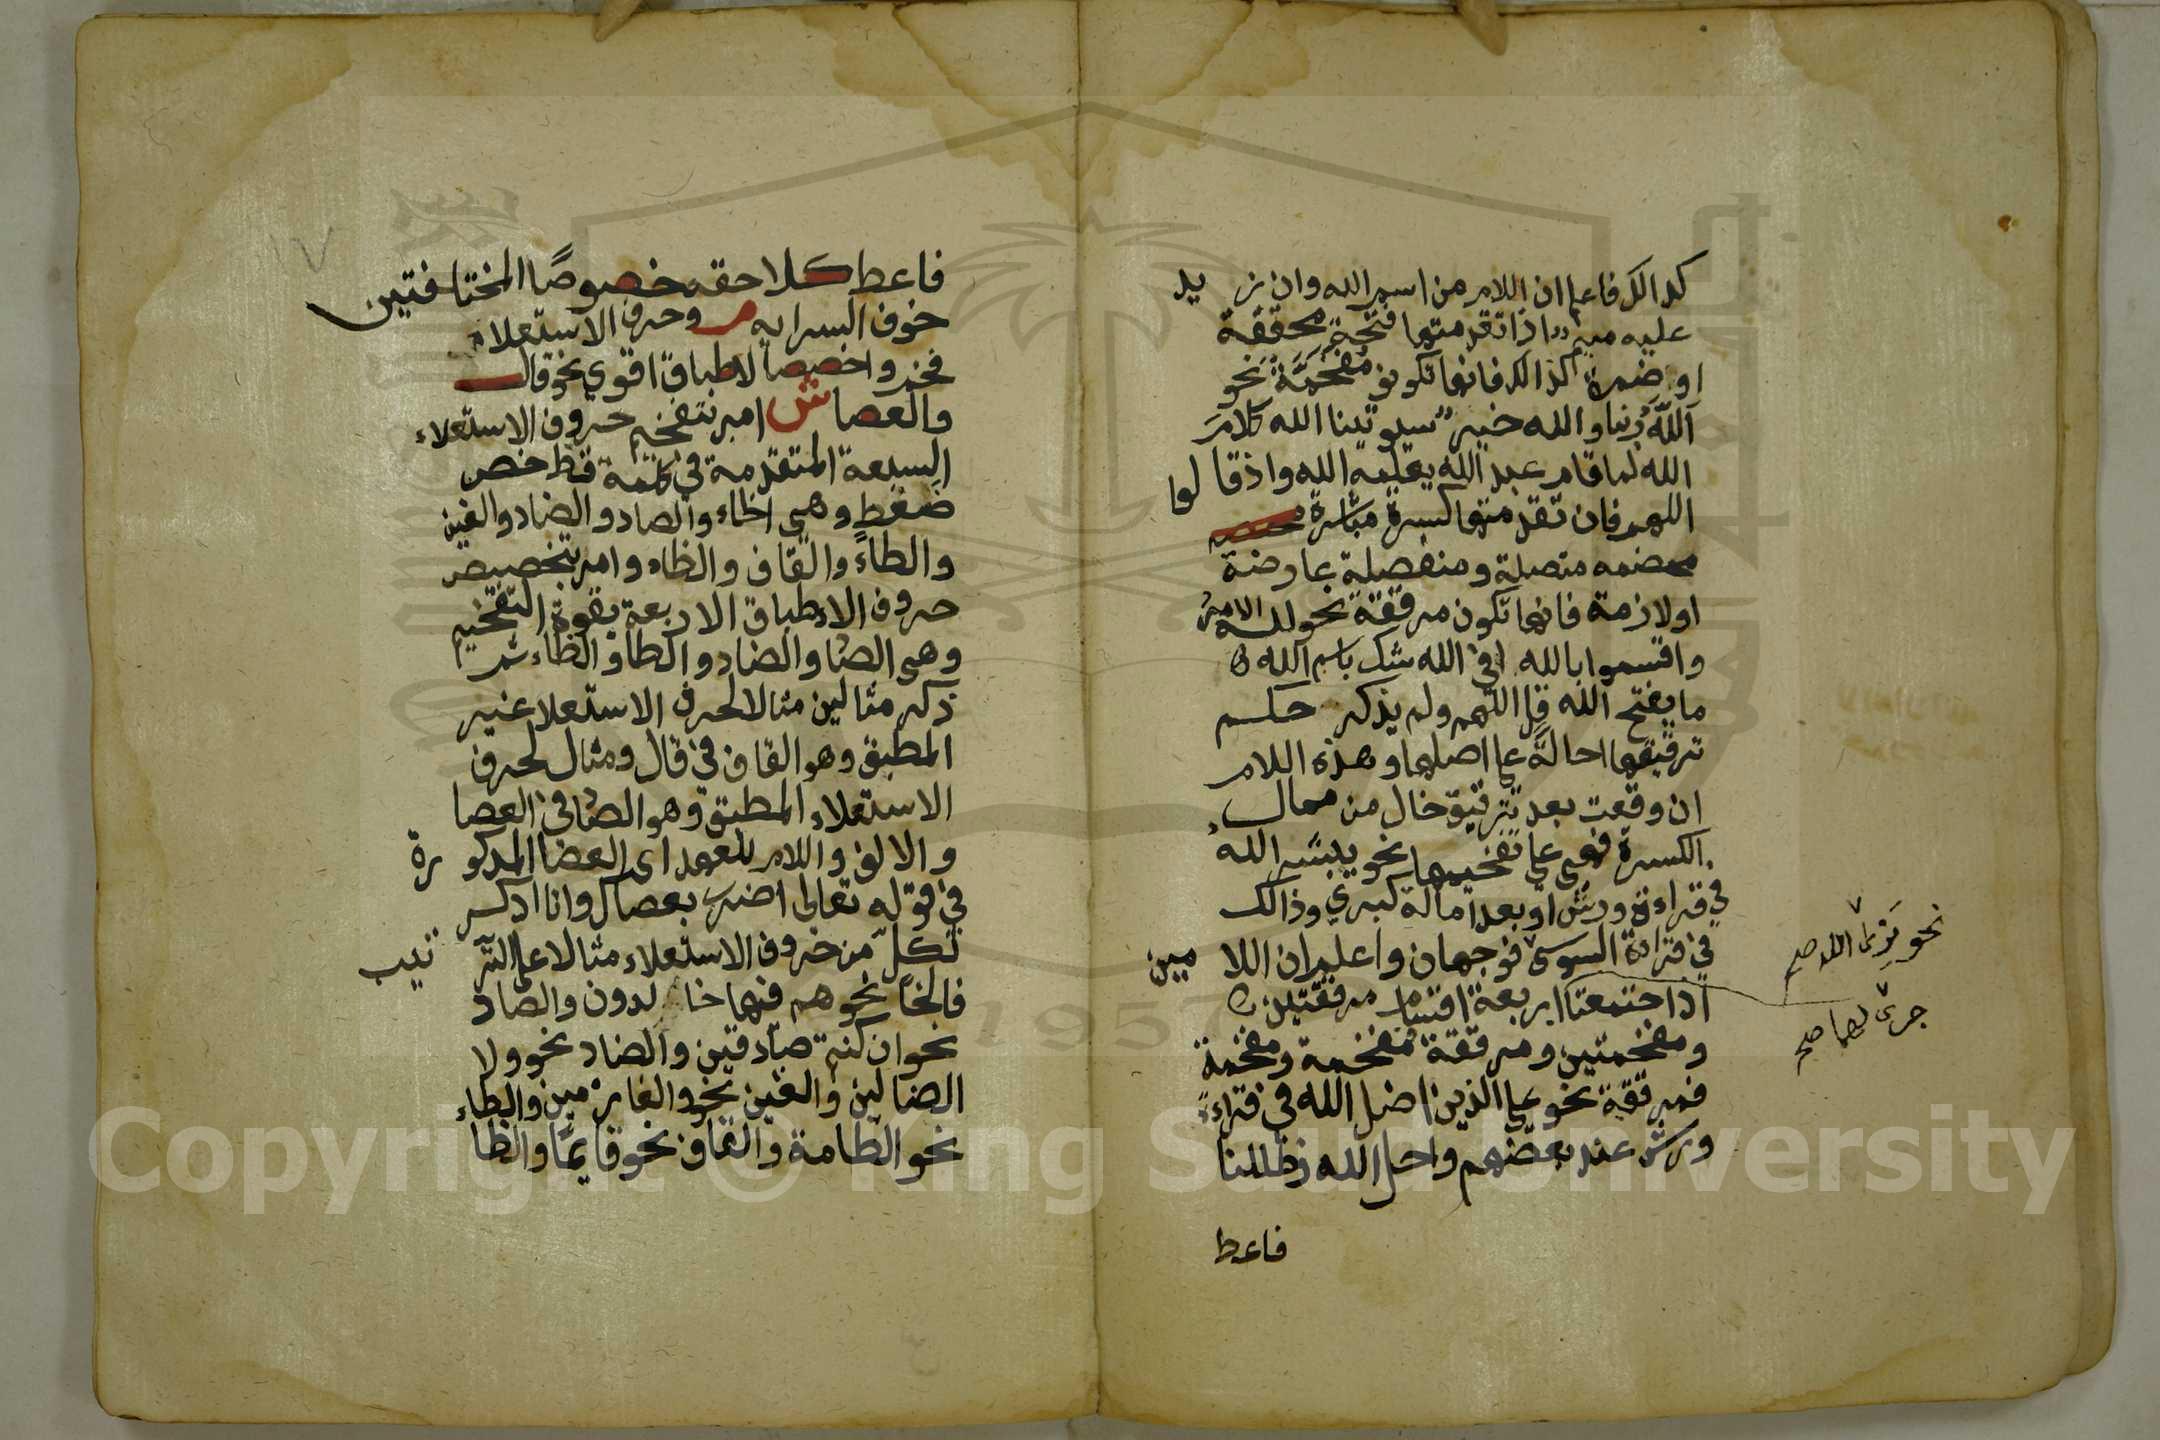 كذالك فاعلم ان اللام من اسم الله وان زيد
عليه ميم اذا تقدمتها فتحة محققة
او ضمة كذالك فانها تكون مفخمة نحو
آللَّه ربنا والله خير سيوتينا الله كلام
الله لما قام عبد الله يعلمه الله واذ قالوا
اللهم فان تقدمتها كسرة مباشرة محضه
محضمه متصلة ومنفصلة عارضة
او لازمة فانها تكون مرققة نحو لله الامر
واقسموا بالله افي الله شك باسم الله
ما يفتح الله قل اللهم ولم يذكر حكم
ترقيقها احالة على اصلها وهذه اللام
ان وقعت بعد ترقيق خال من ممال
الكسرة فهي على تفخيمها نحو يبشر الله
في قراءة ورش او بعد امالة كبرى وذالك
في قراءة السوسى فوجهان واعلم ان اللامين
اذا اجتمعتا اربعة اقسام مرققتين
ومفخمتين ومرققة مفخمة ومفخمة
فمرققة نحو على الذين اضل الله في قراءة
ورش عند بعضهم واحل الله وظللنا
فاعط
نحو نرى الله صح
جرى لهما صح
فاعط كلا حقه خصوصًا المختلفتين
خوف السراية م وحرف الاستعلاء
فخم واخصصا لاطباق اقوي نحو قال
والعصا ش امر بتفخيم حروف الاستعلاء
السبعة المتقدمة في كلمة قظ خص
ضغط وهي الخاء والصاد والضاد والغين
والطاء والقاف والظاء وامر بتخصيص
حروف الاطباق الاربعة بقوة التفخيم
وهي الصاد والضاد والطاء والظاء ثم
ذكر مثالين مثالا لحرف الاستعلا غير
المطبق وهو القاف في قال ومثال لحرف
الاستعلاء المطبق وهو الصاد في العصا
والالف واللام للعهد اى العصا المذكورة
في قوله تعالى اضرب بعصاك وانا اذكر
لكل من حروف الاستعلاء مثالا على الترتيب
فالخا نحو هم فيها خالدون والصاد
نحو ان كنتم صادقين والضاد نحو ولا
الضالين والغين نحو والغارمين والطاء
نحو الطامة والقاف نحو قايما والظا